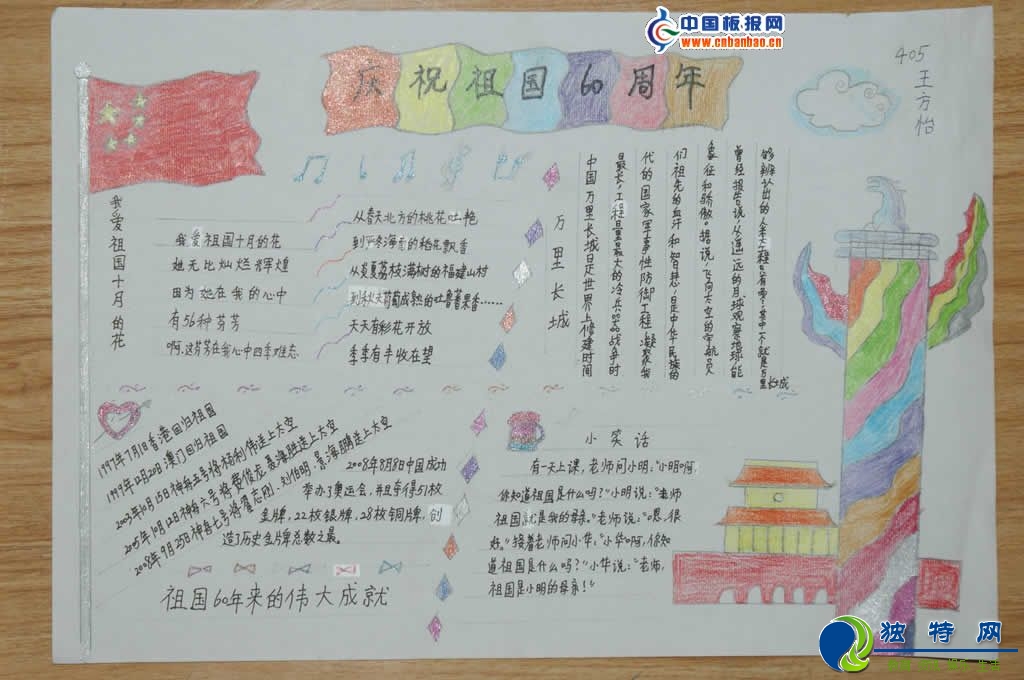 中国板报网
www.cnbanbao.cn
405
王方怡
庆祝祖国60周年
我爱祖国十月的花
我爱祖国十月的花
她无比灿烂辉煌
因为她在我的心中
有56种芬芳
啊,这芬芳在我心中四季难忘
从春天北方的桃花吐艳
到秋天葡萄成熟的吐鲁番果香……
天天有彩花开放
季季有丰收在望
万里长城
中国万里长城是世界上修建时间
最长,工程量最大的冷兵器战争时
代的国家军事性防御工程,凝聚我
们祖先的血汗和智慧,是中华民族的
象征和骄傲。据说,飞向太空的宇航员
曾经报告说,从遥远的月球观察地球,能
1997年7月1日香港回归祖国
1999年12月20日澳门回归祖国
2003年10月15日神舟五号将杨利伟送上太空
2005年10月12日神舟六号将费俊龙,聂海胜送上太空
2008年9月25日神舟七号将翟志刚.刘伯明.景海鹏送上太空
2008年8月8日中国成功
举办了奥运会,并且夺得51枚
金牌,22枚银牌,28枚铜牌,创
造了历史金牌总数之最。
祖国60年来的伟大成就
小笑话
有一天上课,老师问小明:“小明啊,
你知道祖国是什么吗?”小明说:“老师
祖国就是我的母亲。”老师说:“恩,很
好。”接着老师问小华:“小华啊,你知
道祖国是什么吗?”小华说:“老师,
祖国是小明的母亲!”
独特网